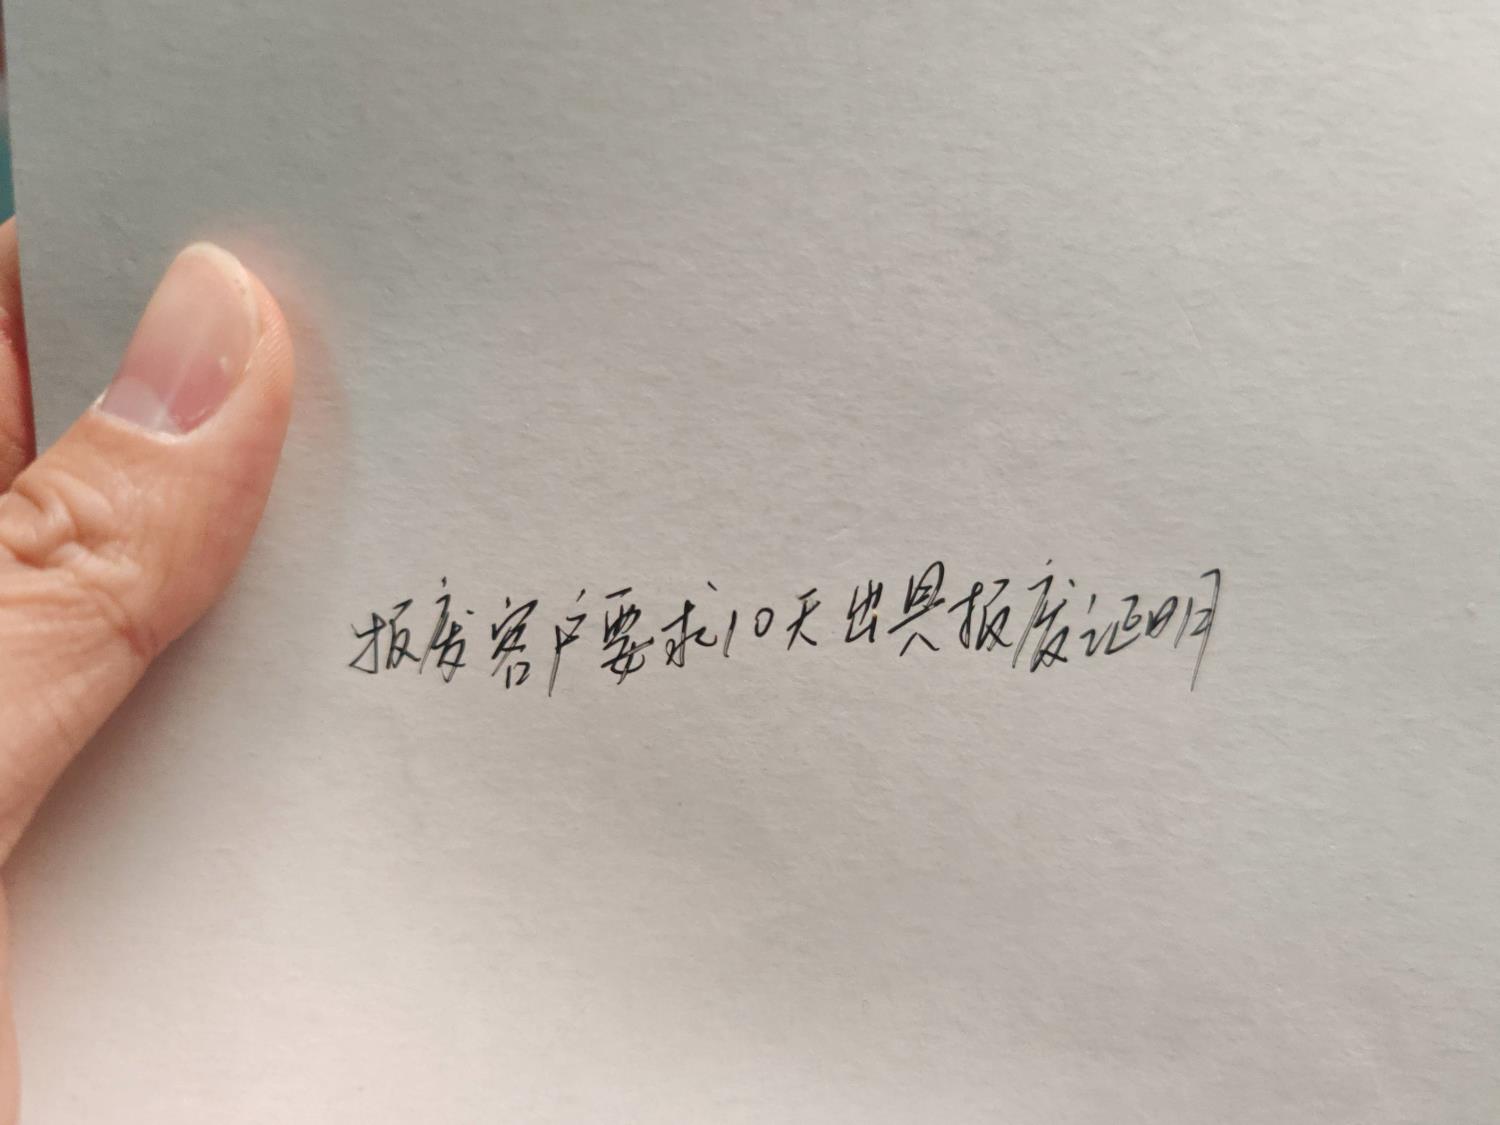 报废客户要求10天出具报废证明